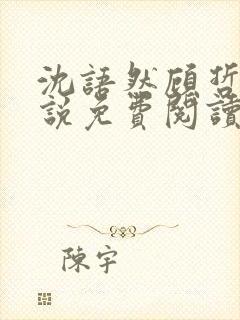 沈語然顧哲
說免費閱讀
陳宇